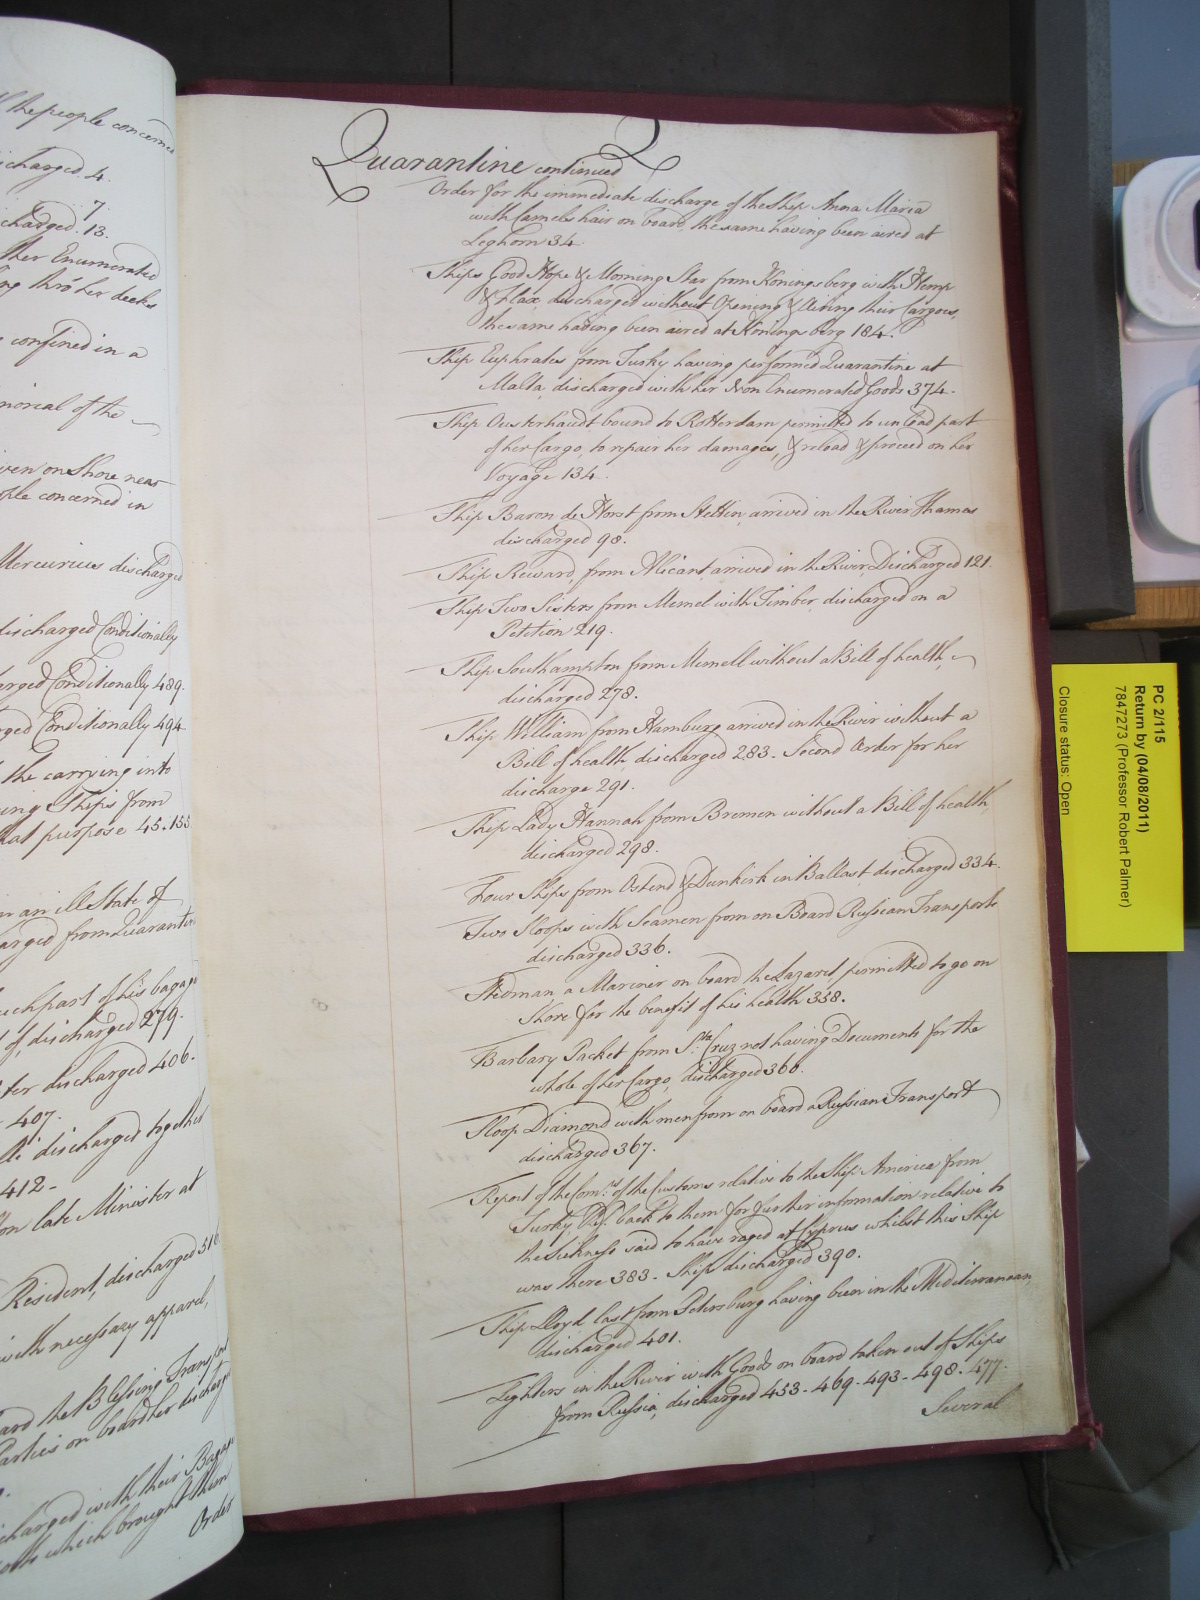 the people concerned
charged 4.
7.
charged. 13.
ther Enumerated
ng thro' her decks
confined in a
morial of the
ven on Shore near
ple concerned in
Mercurius discharged
discharged Conditionally
arged Conditionally 489.
rged Conditionally 494
the carrying into
ing Ships from
hat purpose 45.155
n an ill State of
arged from Quarantine
uch part of his bagage
of, discharged 279.
ter discharged 406.
407.
discharged together
412-
on late Minister at
Resident, discharged 516
with necessary apparel,
ard the Blessing Transport
Parties on board her discharge
charged with their Bagage
which brought them
Order
Quarantine continued
Order for the immediate discharge of the Ship Anna Maria
with Camels hair on board, the same having been aired at
Leghorn 34.
Ships Good Hope & Morning Star from Koningsberg with Hemp
& Flax, discharged without Opening & Airing their Cargoes,
the same having been aired at Koningsberg 184.
Ship Euphrates from Turky having performed Quarantine at
Malta, discharged with her Non Enumerated Goods 374.
Ship Ousterhaudt bound to Rotterdam permitted to unload part
of her Cargo, to repair her damages, & reload & proceed on her
Voyage 134.
Ship Baron de Horst from Stettin, arrived in the River Thames
discharged 98.
Ship Reward, from Alicant, arrived in the River, Discharged 121.
Ship Two Sisters from Memel with Timber, discharged on a
Petition 219.
Ship Southampton from Memell without a Bill of health,
discharged 278.
Ship William from Hamburg arrived in the River without a
Bill of health, discharged 283. Second Order for her
discharge 291.
Ship Lady Hannah from Bremen without a Bill of health,
discharged 298.
Four Ships from Ostend & Dunkirk in Ballast discharged 334.
Two Sloops with Seamen from on Board Russian Transports
discharged 336.
Stedman a Mariner on board the Lazaret, permitted to go on
Shore for the benefit of his health 338.
Barbary Packet from Sta. Cruz not having Documents for the
whole of her Cargo, discharged 366.
Sloop Diamond with men from on board a Russian Transport
discharged 367.
Report of the Comrs. of the Customs relative to the Ship America from
Turky, Ref. back to them for further information relative to
the sickness said to have raged at Cyprus whilst this Ship
was there 383. Ship discharged 390.
Ship Lloyd last from Petersburg having been in the Mediterranean,
discharged 401.
Lighters in the River with Goods on board taken out of Ships
from Russia, discharged 453. 469. 493. 498. 477.
Several
PC 2/115
Return by (04/08/2011)
7847273 (Professor Robert Palmer)
Closure status: Open